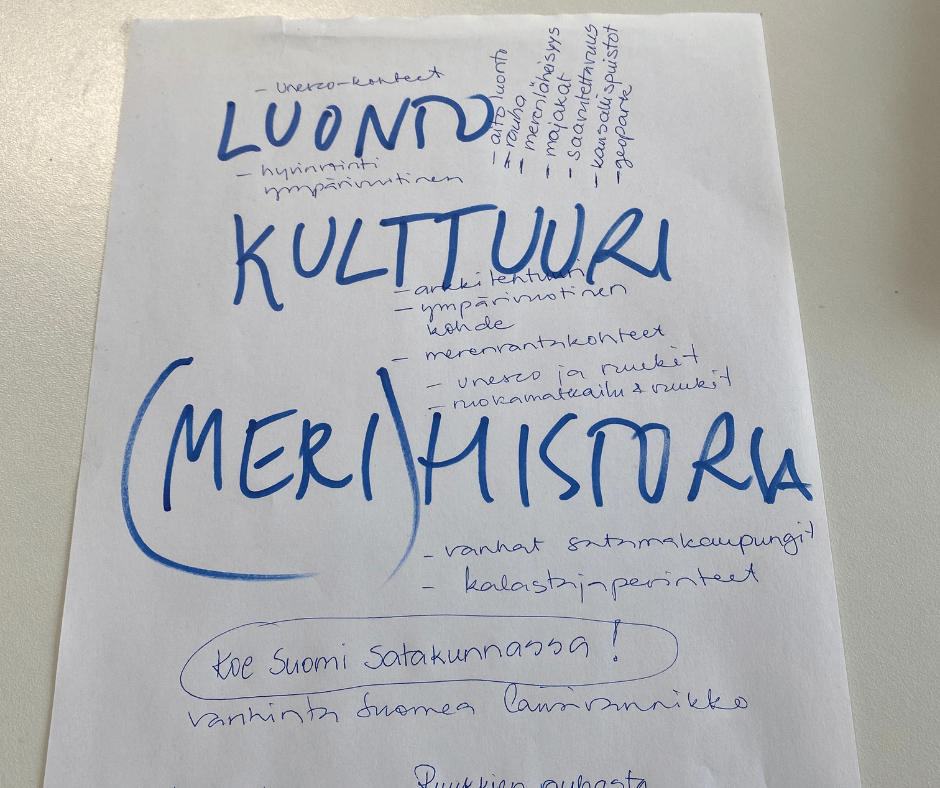 - Unesco-kohteet
LUONTO
- aito luonto
- rauha
- merenläheisyys
- majakat
- saavutettavuus
- kansallispuistot
- geopark
- hyvinvointi
ympärivuotinen
KULTTUURI
- arkkitehtuuri
- ympärivuotinen
kohde
- merenrantakohteet
- unesco ja ruukit
- ruokamatkailu & ruukit
(MERI)HISTORIA
- vanhat satamakaupungit
- kalastajaperinteet
Koe Suomi Satakunnassa!
vanhinta Suomea länsirannikko
Ruukkien